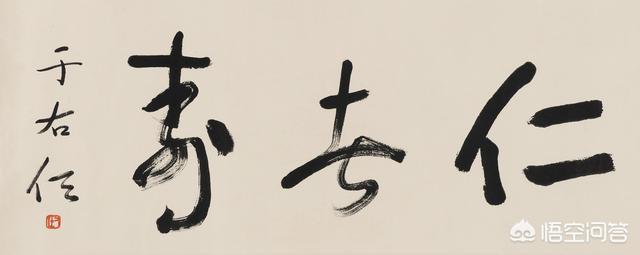 仁者寿
于右任
悟空问答